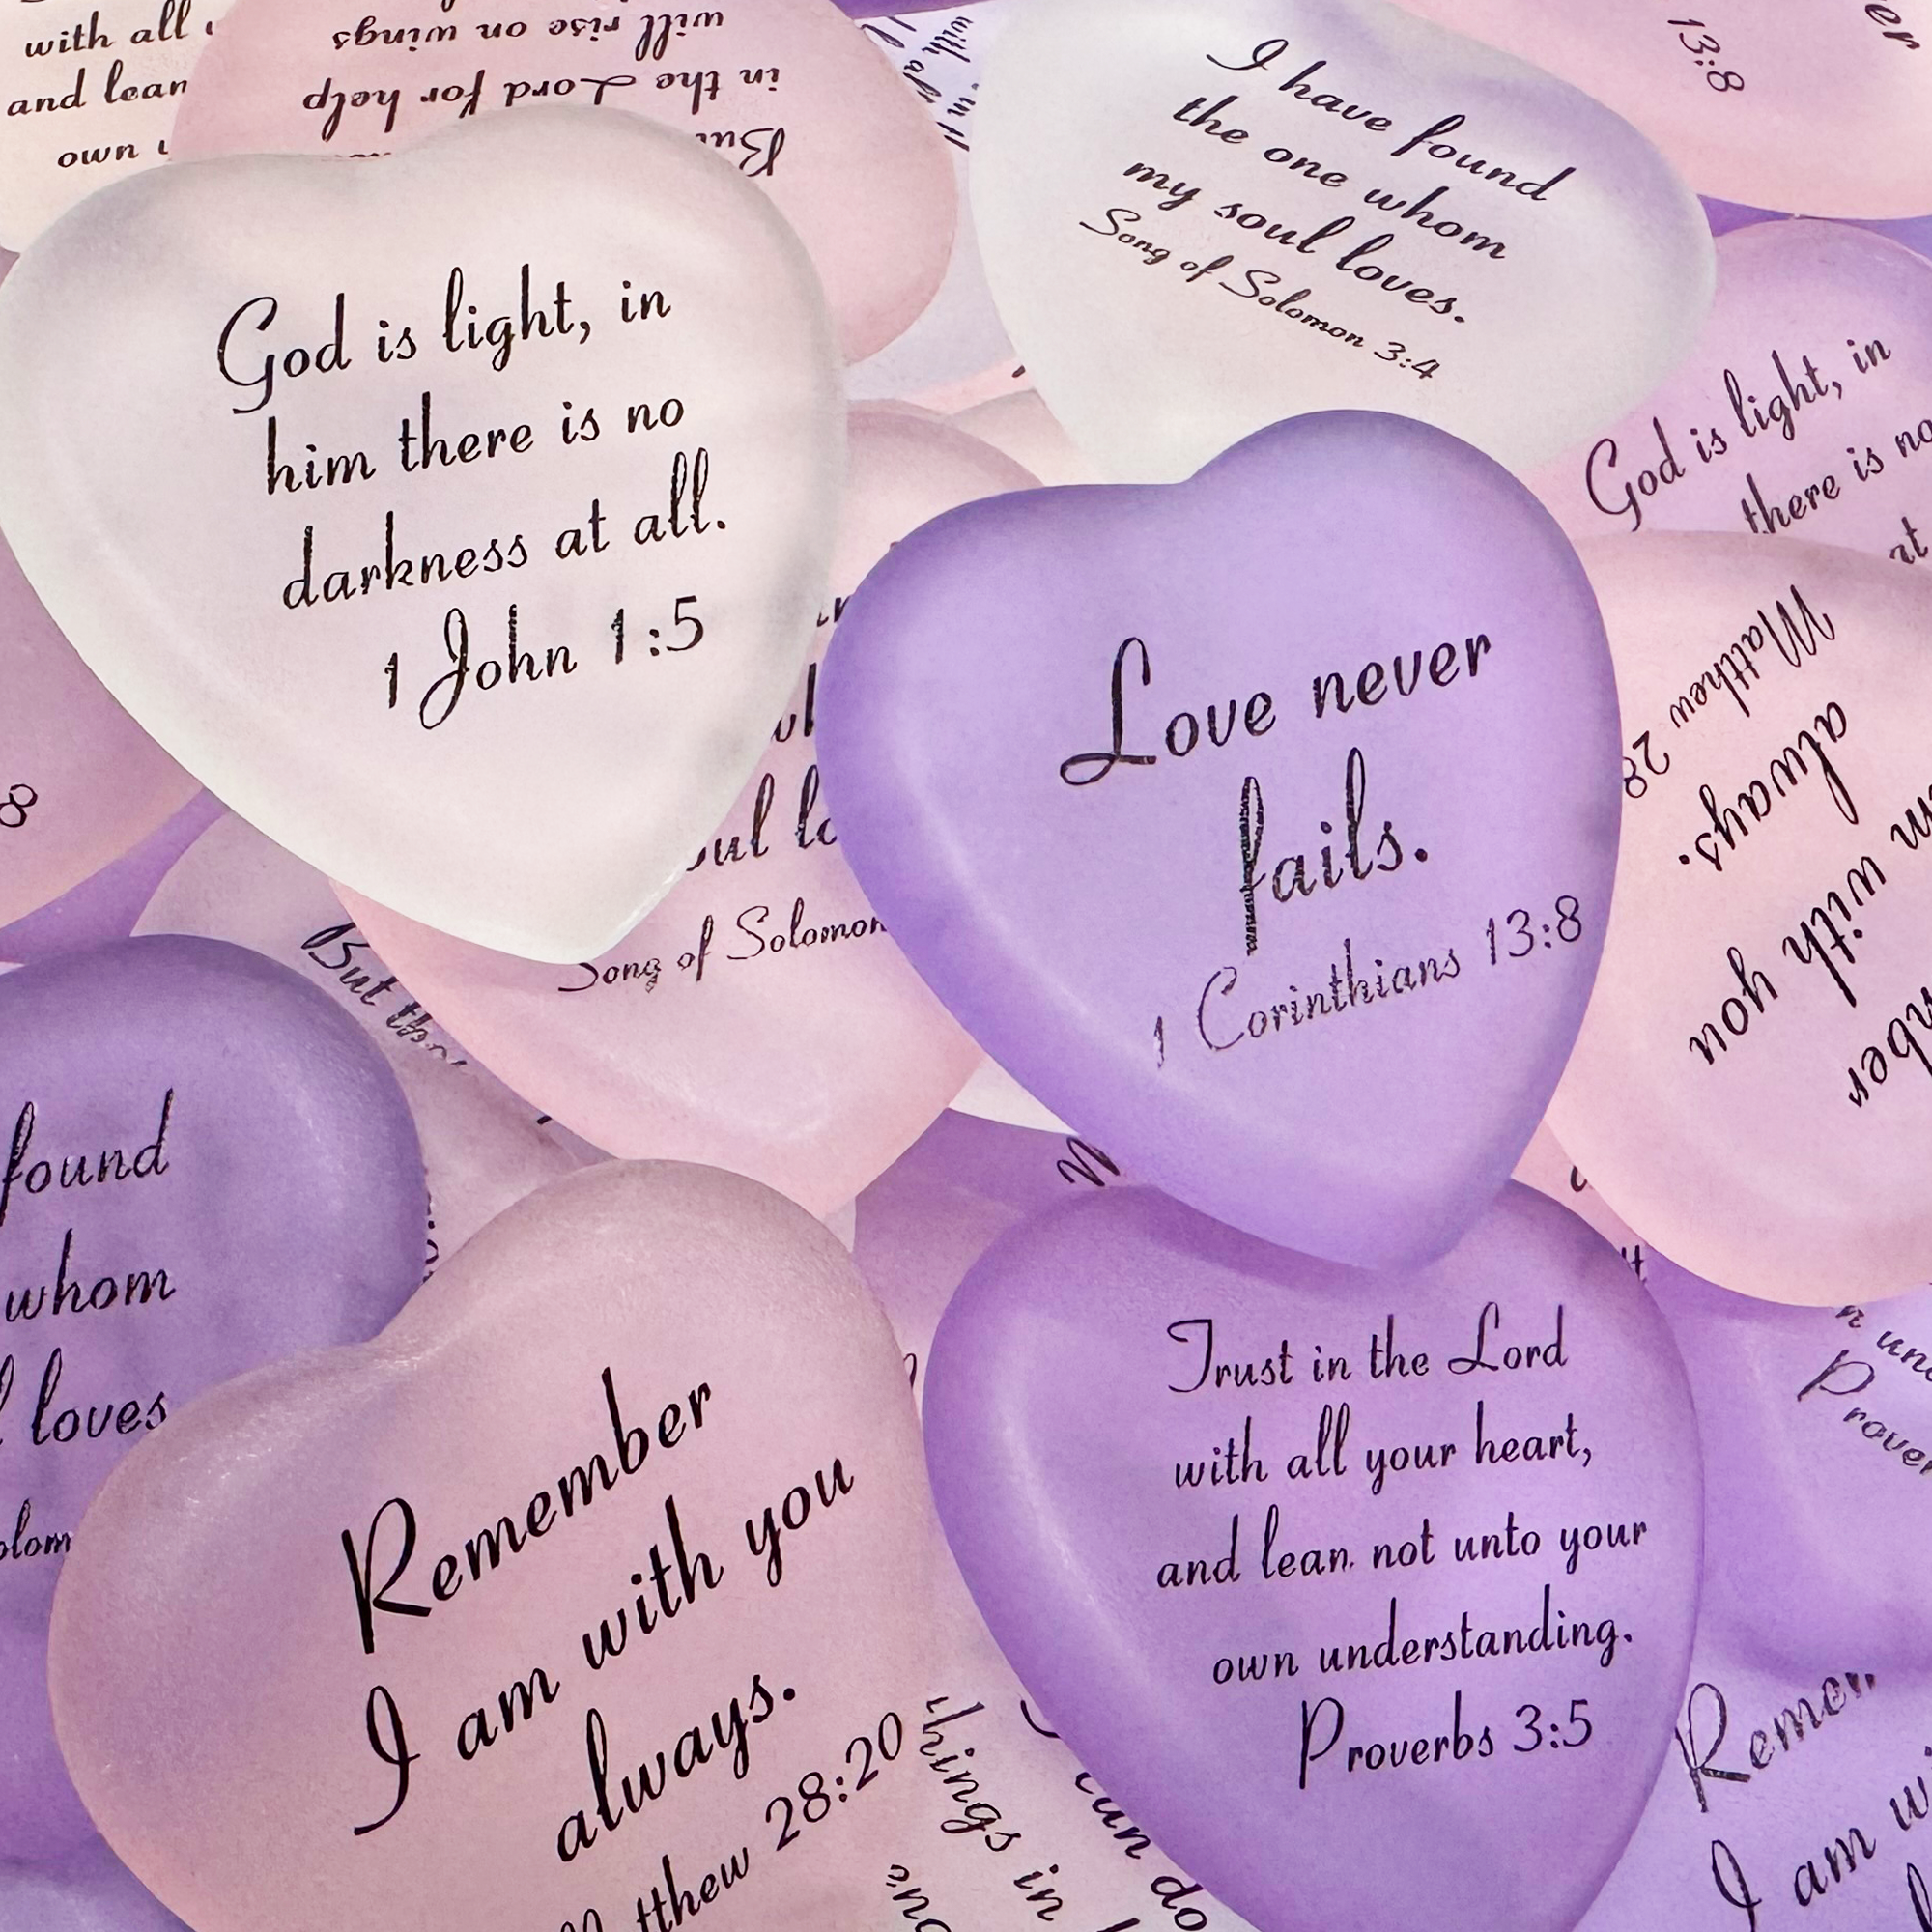 with all
and lean
own
But
in the Lord for help
will rise on wings
I have found
the one whom
my soul loves.
Song of Solomon 3:4
13:8
God is light, in
him there is no
darkness at all.
1 John 1:5
God is light, in
there is no
at
Love never
fails.
1 Corinthians 13:8
Song of Solomon
But
8
Remember
with you
always.
Matthew 28
found
whom
loves
Remember
I am with you
always.
28:20
Trust in the Lord
with all your heart,
and lean not unto your
own understanding.
Proverbs 3:5
things in
can do
I am